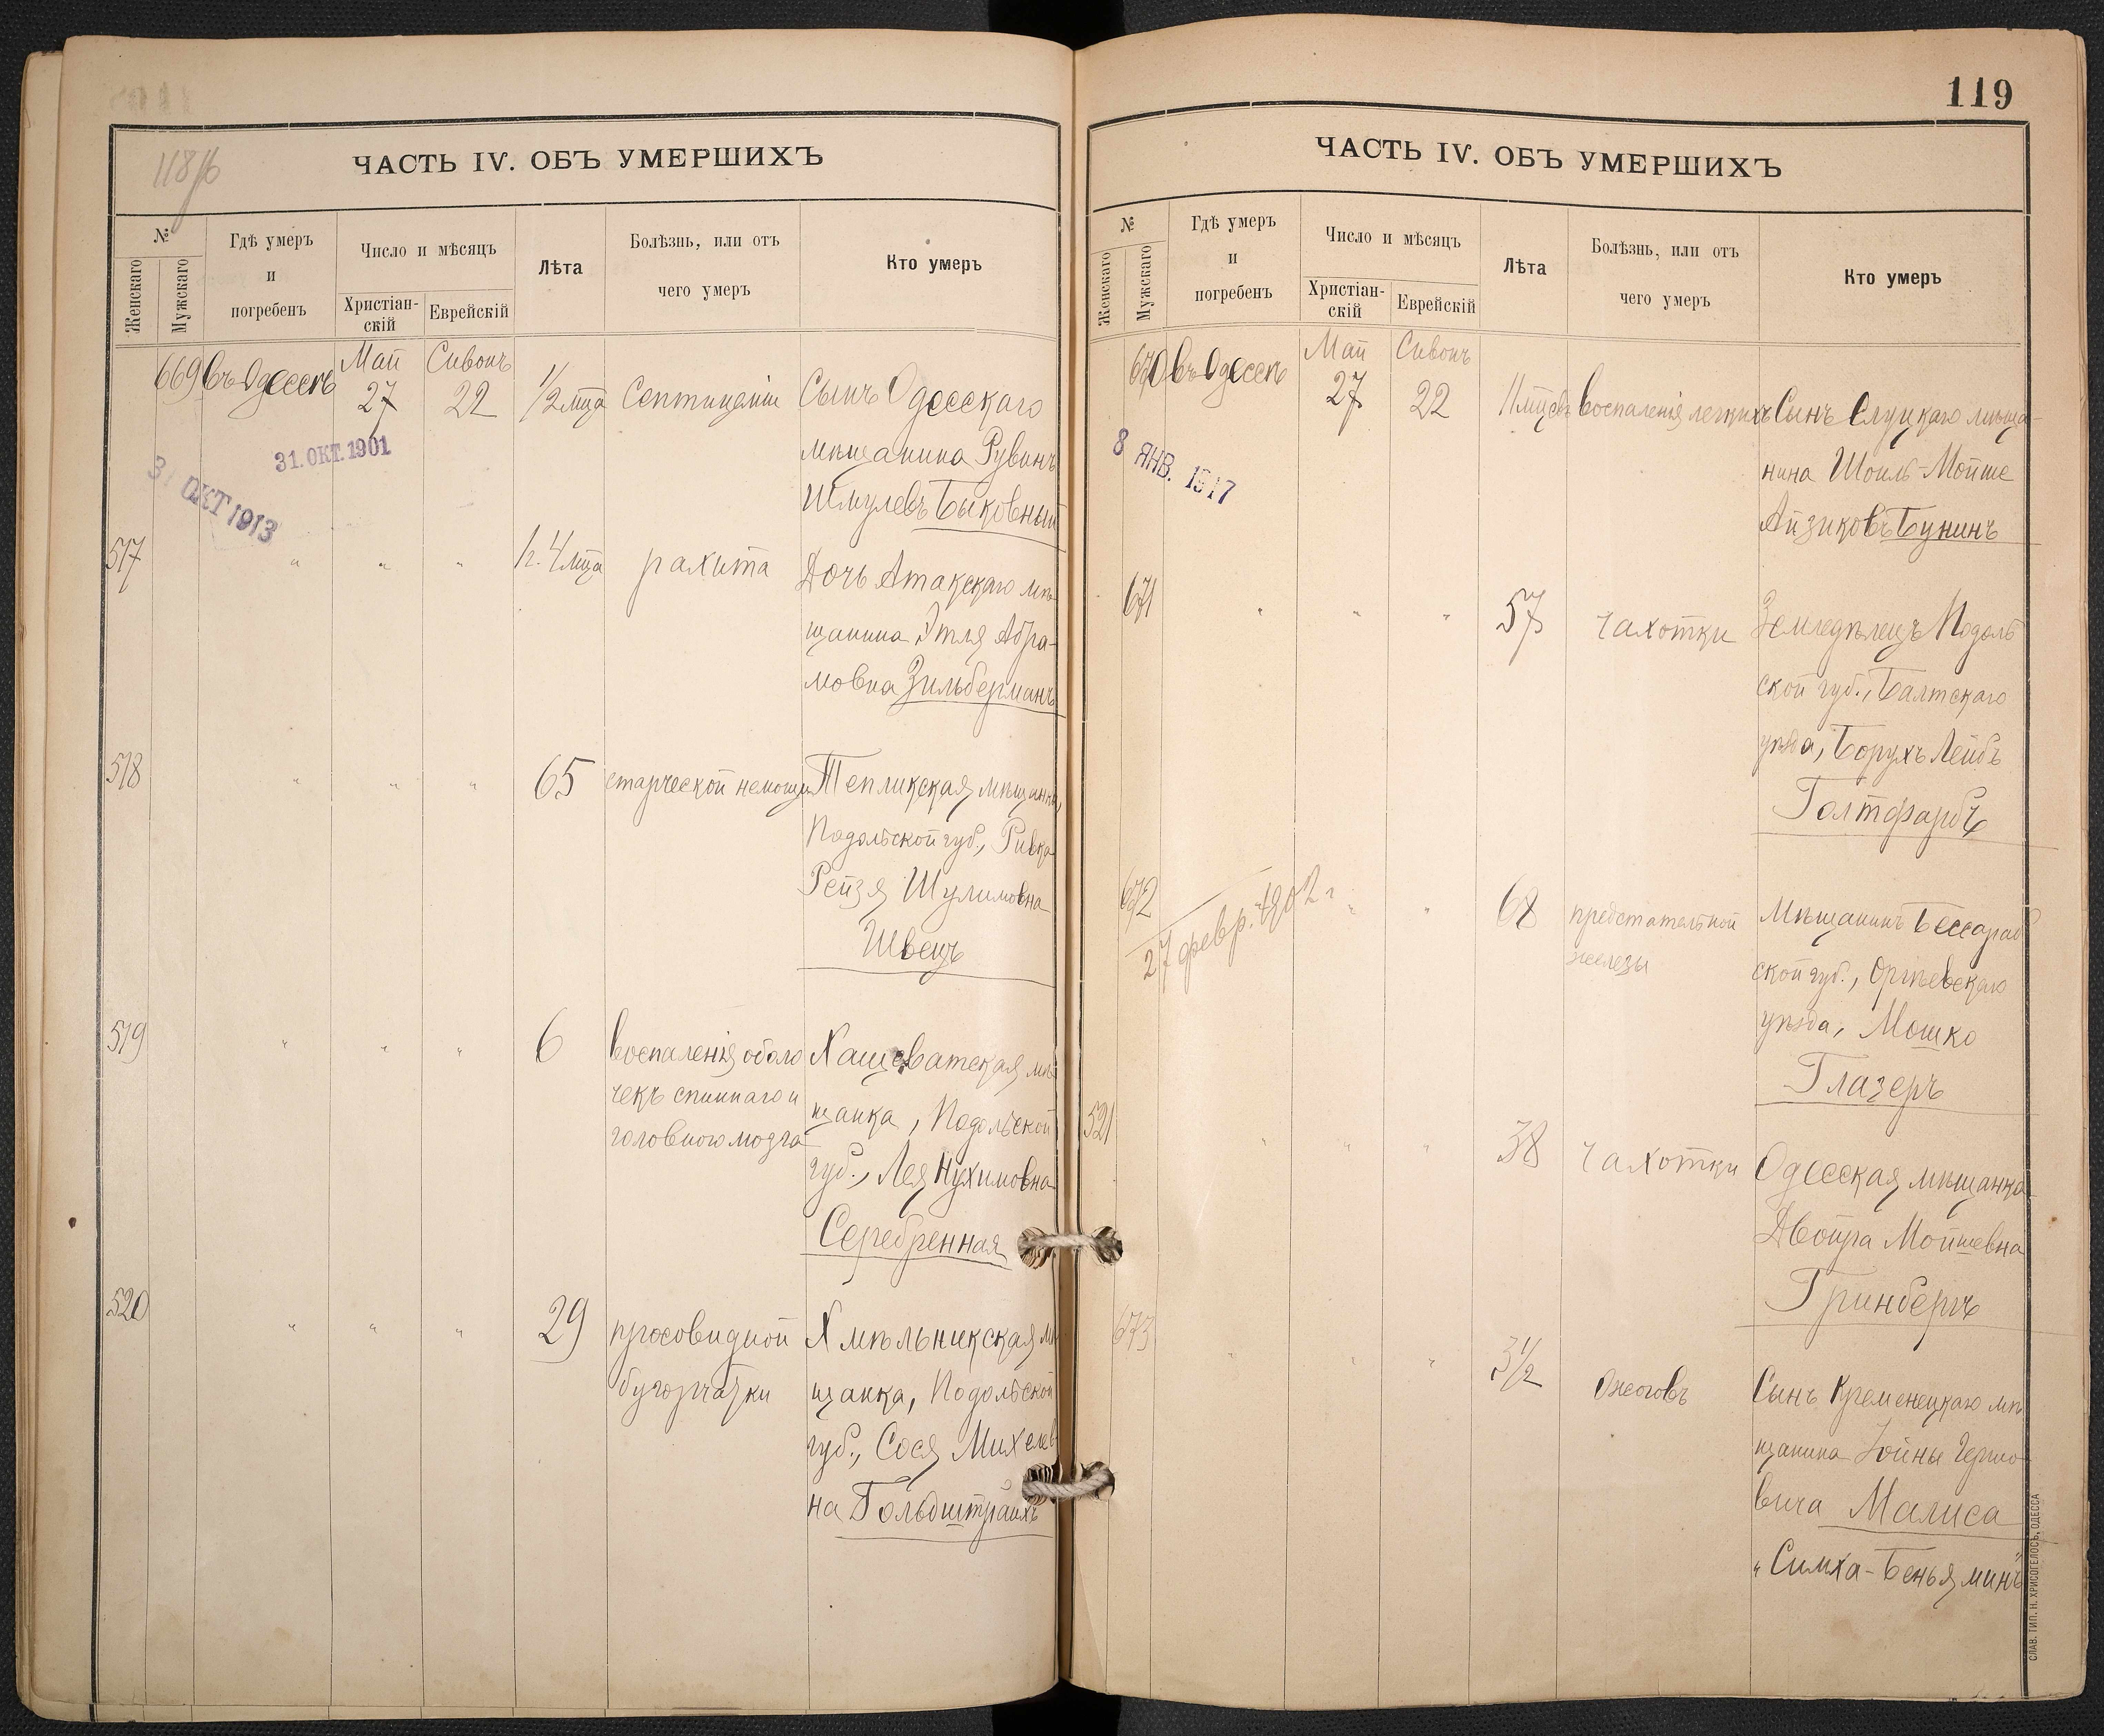 118 об
ЧАСТЬ IV. ОБЪ УМЕРШИХЪ
№
Женскаго
Мужскаго
Гдѣ умеръ
и
погребенъ
Число и мѣсяцъ
Христіан-
скій
Еврейскій
Лѣта
Болѣзнь, или отъ
чего умеръ
Кто умеръ
669 въ Одессѣ Май 27 Сивонъ 22 1/2 мца Септицеміи Сынъ Одесскаго
мѣщанина Рувинъ
Шмулевъ Быковный
31. ОКТ. 1901
31 ОКТ 1913
517 " " " 1 г. 4 мца рахита Дочь Атакскаго мѣ-
щанина Этля Абра-
мовна Зильберманъ
518 " " " 65 старческой немощи Тепликская мѣщанка,
Подольской губ., Ривка
Рейзя Шулимовна
Швецъ
519 " " " 6 воспаленія оболо Хащеватская мѣ
чекъ спиннаго и щанка, Подольской
головного мозга губ., Лея Нухимовна
Серебренная
520 " " " 29 просовидной Хмѣльникская мѣ
бугорчатки щанка, Подольской
губ., Сося Михелев
на Гольдштраихъ
119
ЧАСТЬ IV. ОБЪ УМЕРШИХЪ
№
Женскаго
Мужскаго
Гдѣ умеръ
и
погребенъ
Число и мѣсяцъ
Христіан-
скій
Еврейскій
Лѣта
Болѣзнь, или отъ
чего умеръ
Кто умеръ
670 въ Одессѣ Май 27 Сивонъ 22 11 мцевъ воспаленія легкихъ Сынъ Слуцкаго мѣща-
нина Шоиль-Мойше
Айзиковъ Бунинъ
8 ЯНВ. 1917
671 " " " 57 чахотки Земледѣлецъ Подоль
ской губ., Балтскаго
уѣзда, Борухъ Лейбъ
Голтфарбъ
672 " " 68 предстательной Мѣщанинъ Бессараб
железы ской губ., Оргѣевскаго
27 февр. 1902 г
уѣзда, Мошко
Глазеръ
521 " " " 38 чахотки Одесская мѣщанка
Двойра Мойшевна
Гринбергъ
673 " " " 3 1/2 ожоговъ Сынъ Кременецкаго мѣ
щанина Іойны Гершо-
вича Малиса
"Симха-Беньяминъ"
СЛАВ. ТИП. Н. ХРИСОГЕЛОСЪ, ОДЕССА